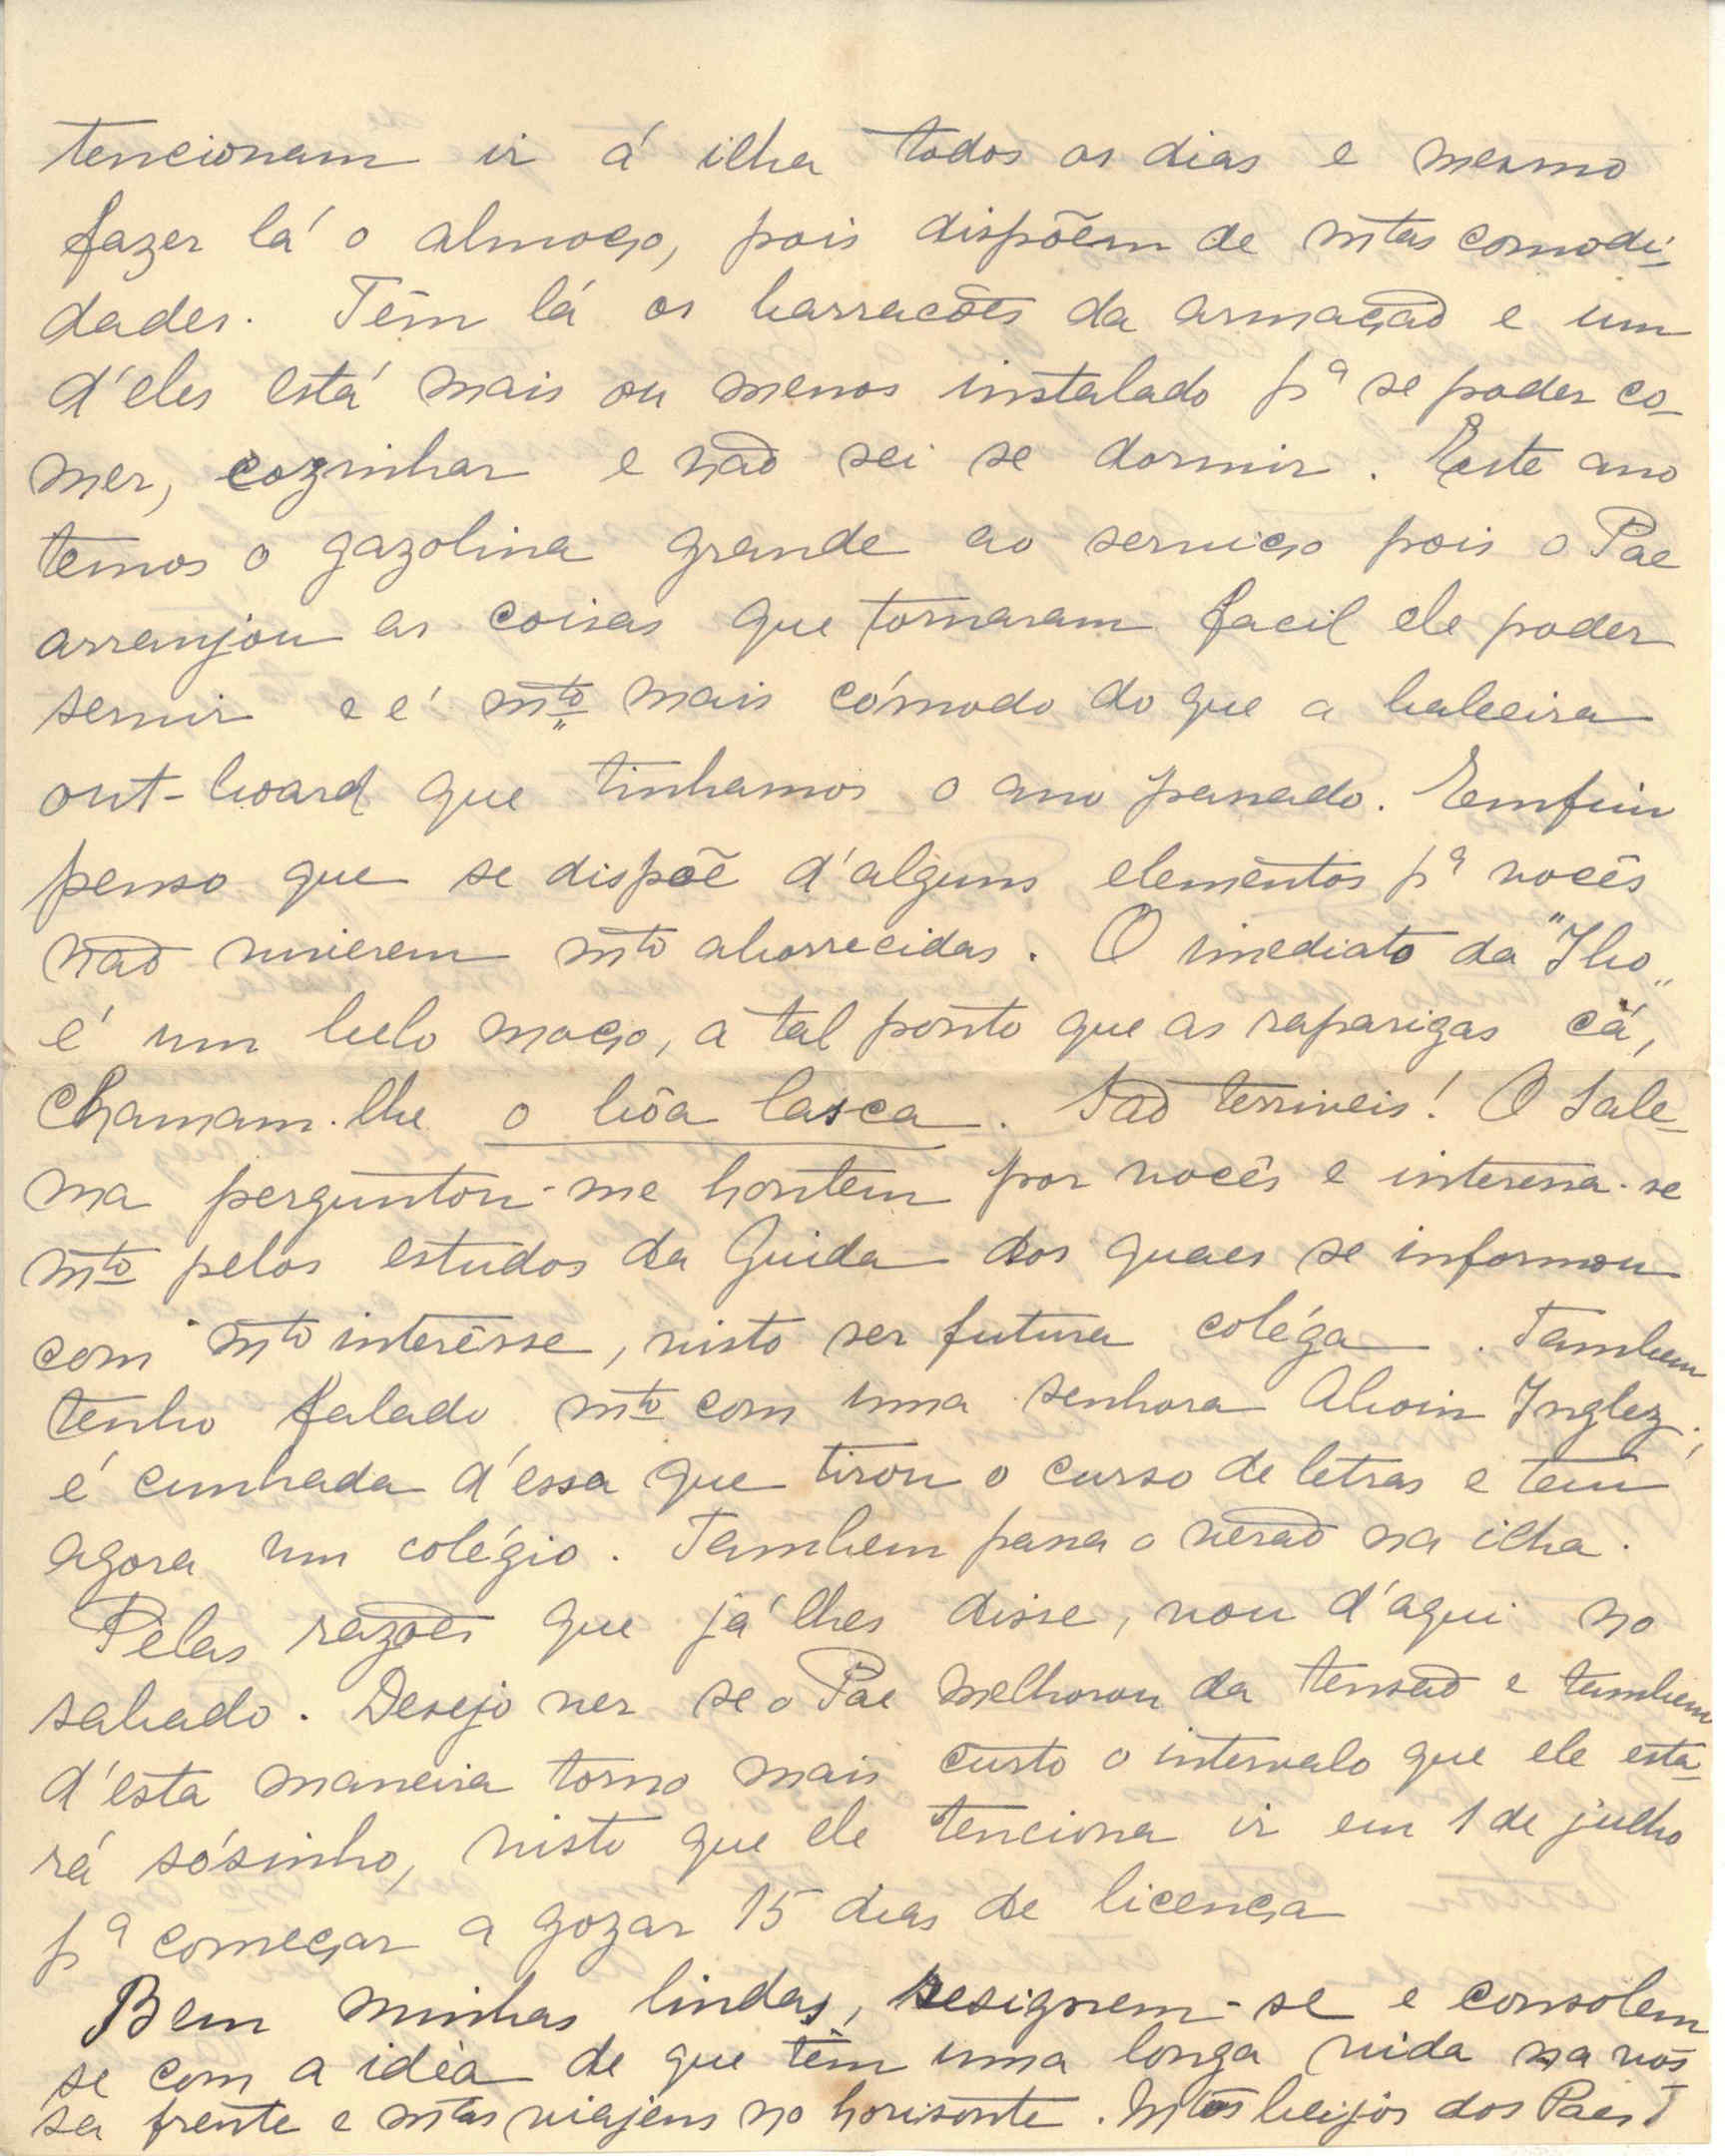 tencionam ir á ilha todos os dias e mesmo
fazer lá o almoço, pois dispõem de mtas comodi-
dades. Têm lá os barracões da armação e um
d'eles está mais ou menos instalado pª se poder co-
mer, cozinhar e não sei se dormir. Este ano
temos o gazolina grande ao serviço pois o Pae
arranjou as coisas que tornaram facil ele poder
servir e é mto mais cómodo do que a baleeira
out-board que tinhamos o ano passado. Emfim
penso que se dispõe d'alguns elementos pª vocês
não vivierem mto aborrecidas. O imediato da "Ibo"
é um belo moço, a tal ponto que as raparigas cá,
chamam-lhe o bôa lasca. São terriveis! O Sale-
ma perguntou-me hontem por vocês e interessa-se
mto pelos estudos da Guida dos quaes se informou
com mto interêsse, visto ser futura coléga. Tambem
tenho falado mto com uma senhora Aboin Inglez;
é cunhada d'essa que tirou o curso de letras e tem
agora um colégio. Tambem passa o verão na ilha.
Pelas razões que já lhes disse, vou d'aqui no
sabado. Desejo ver se o Pae melhorou da tensão e tambem
d'esta maneira torno mais curto o intervalo que ele esta-
rá sósinho, visto que ele tenciona ir em 1 de julho
pª começar a gozar 15 dias de licença
Bem minhas lindas, resignem-se e consolem
se com a idéa de que têm uma longa vida na vos-
sa frente e mtas viajens no horisonte. Mtos beijos dos Paes